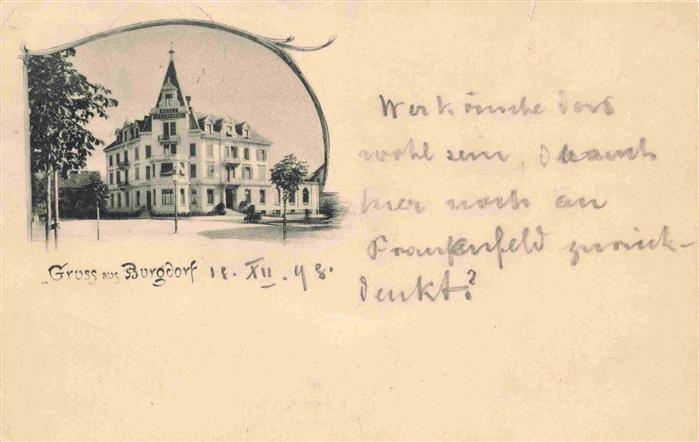 „Gruss aus Burgdorf 18. XII. 98.
Wer könnte das
wohl sein, auch
hier noch an
Frauenfeld zurück-
denkt?